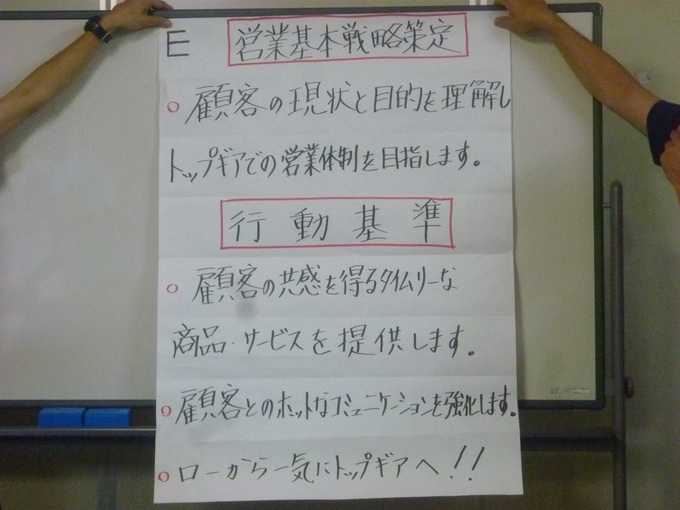 E 営業基本戦略策定
○ 顧客の現状と目的を理解し
トップギアでの営業体制を目指します。
行動基準
○ 顧客の共感を得るタイムリーな
商品・サービスを提供します。
○ 顧客とのホットなコミュニケーションを強化します。
○ ローから一気にトップギアへ!!